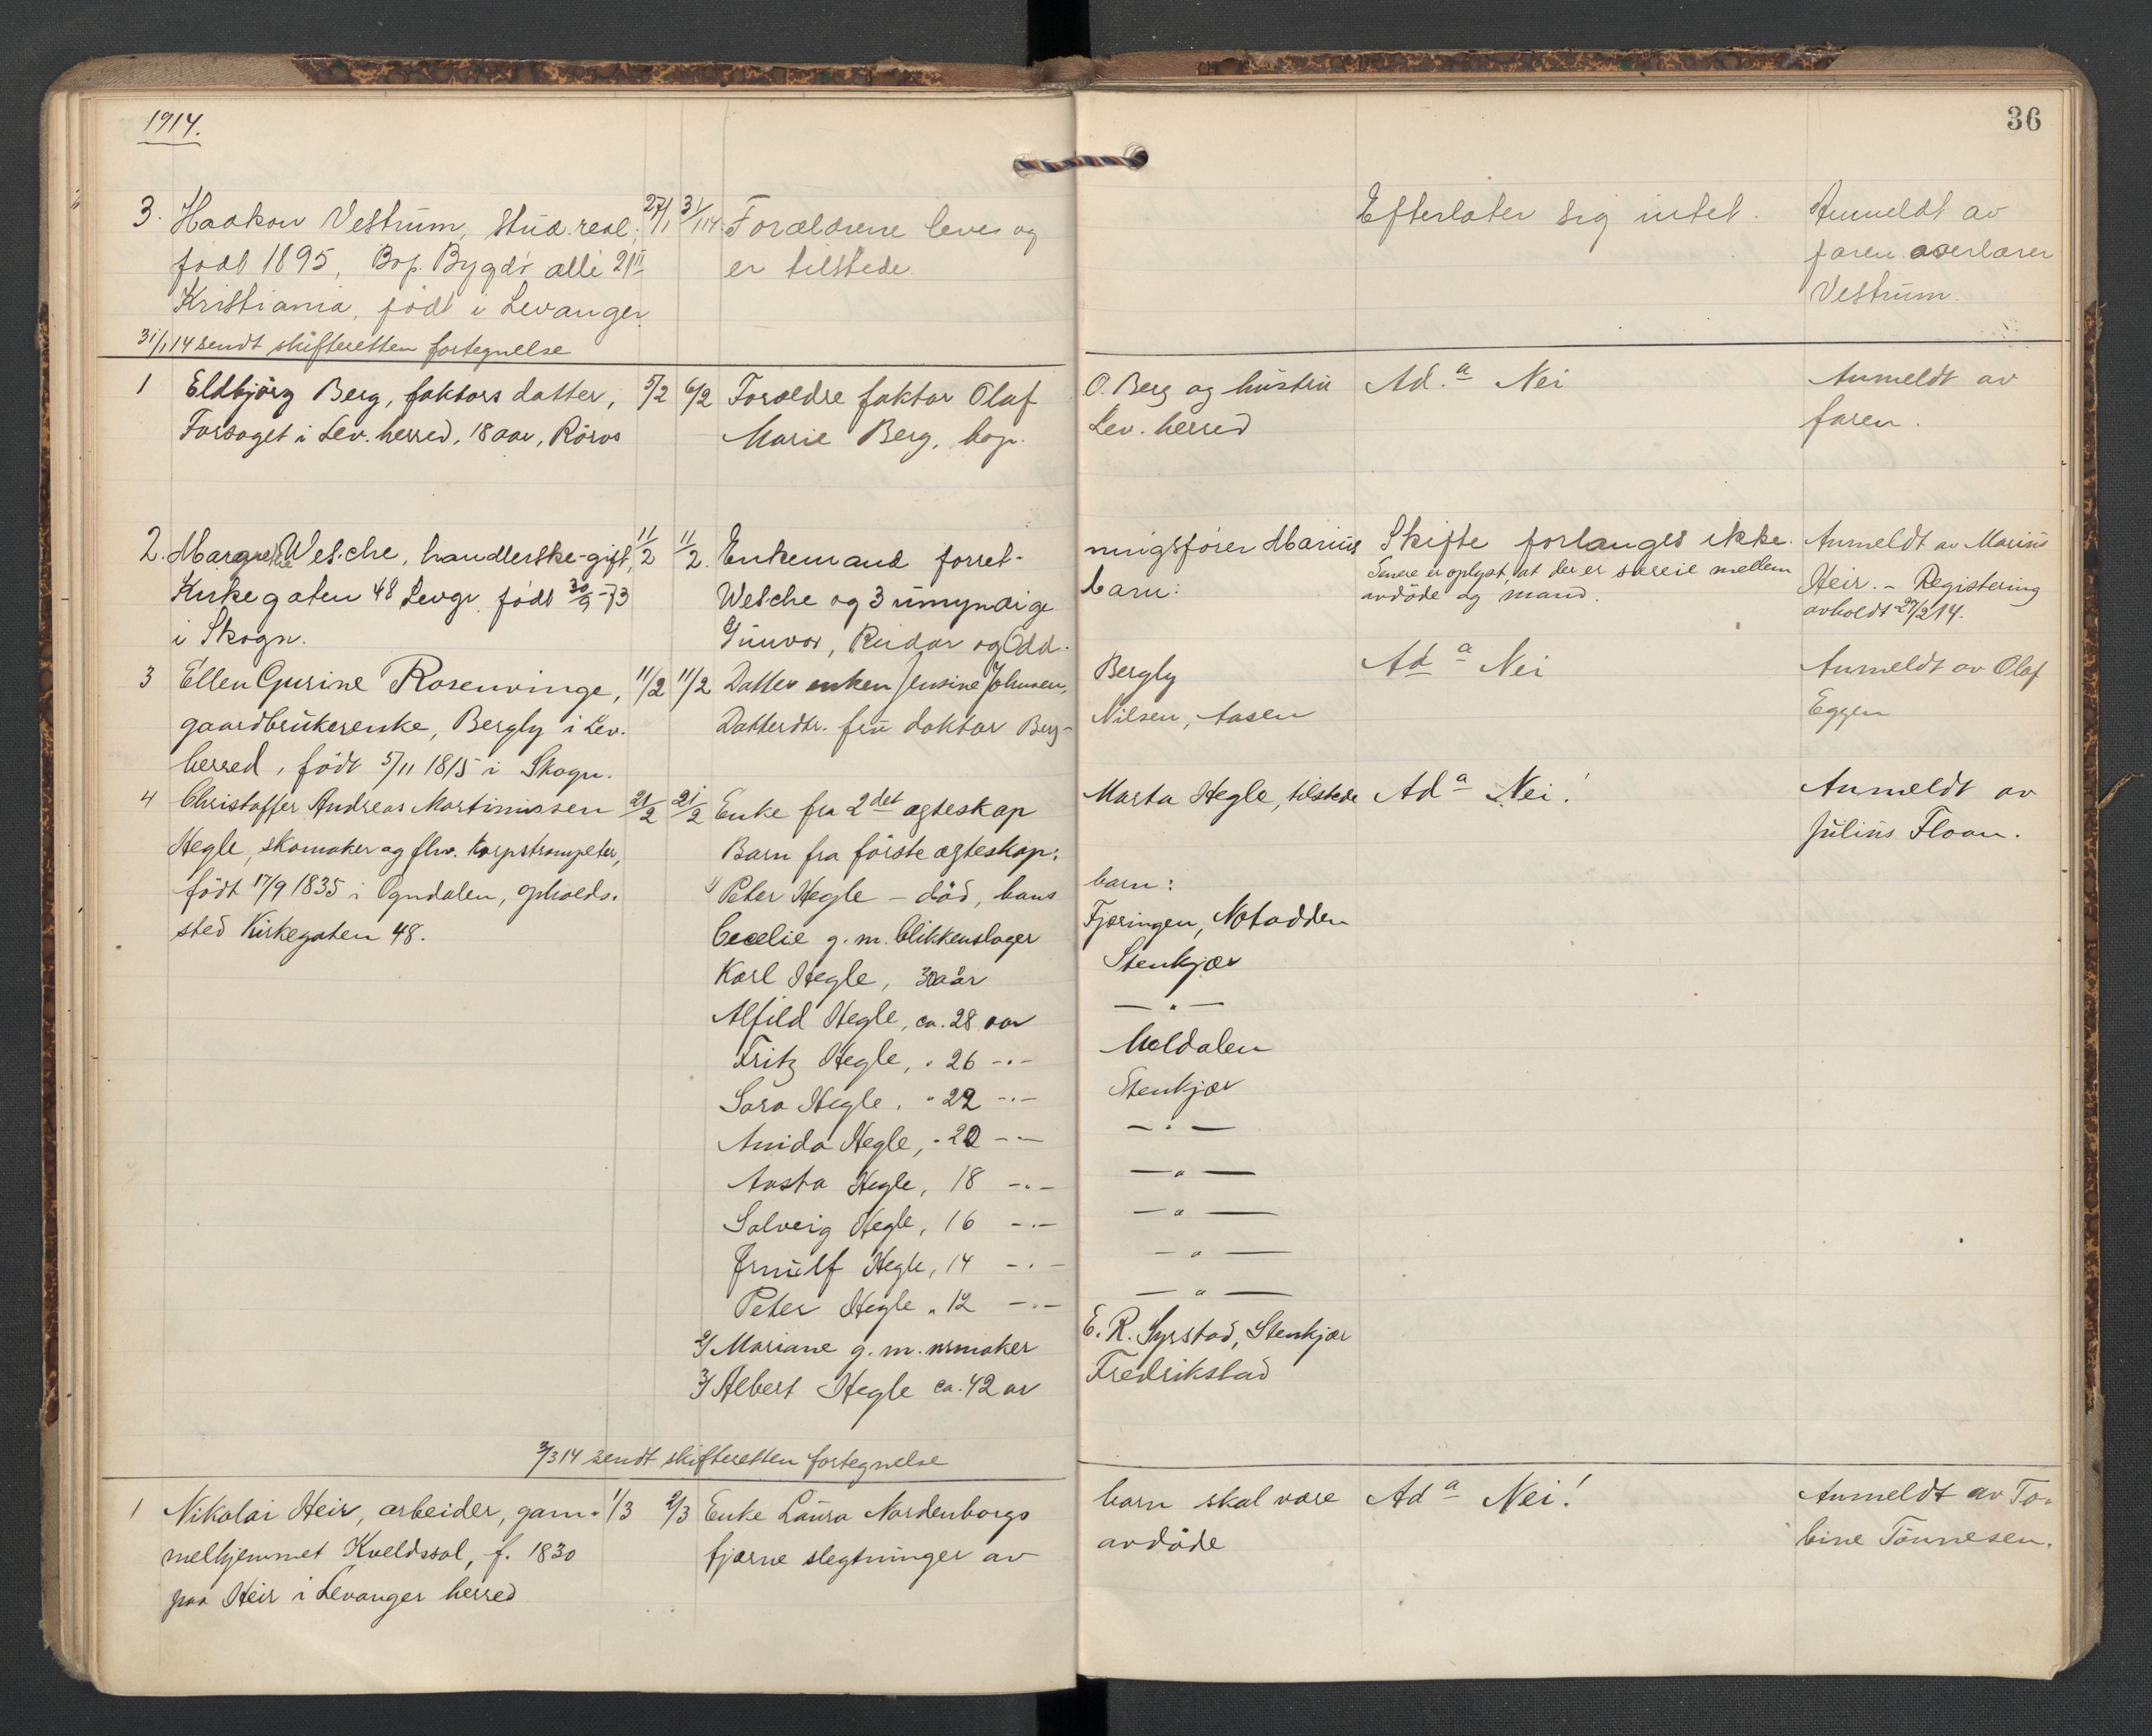 1914.
36
3. Haakon Vestrum, stud. real. 27/1 31/1 14. Forældrene lever og Efterlater sig intet. Anmeldt av
født 1895, Bop. Bygdö alle 21 II er tilstede. faren overlærer
Kristiania, født i Levanger. Vestrum.
31/1 14 sendt skifteretten fortegnelse
1 Eldbjörg Berg, faktors datter, 5/2 6/2 Forældre faktor Olaf O. Berg og hustru Ad. a Nei Anmeldt av
Forsøget i Lev. herred, 18 aar, Röros Marie Berg, bop. Lev. herred faren.
2. Margrethe Welche, handlerske-gift, 11/2 11/2. Enkemand forret- ningsfører Marius Skifte forlanges ikke. Anmeldt av Marius
Senere er oplyst, at der er særeie mellem
Kirkegaten 48 Levgr. født 30/9-73 Welche og 3 umyndige barn: avdöde og mand. Heir. - Registering
i Skogn. Gunvor, Reidar og Odd. avholdt 27/2 14.
3 Ellen Gurine Rosenvinge, 11/2 11/2 Datter enken Jensine Johnsen, Bergly Ad a Nei Anmeldt av Olaf
gaardbrukerenke, Bergly i Lev. Datterdtr. fru doktor Berg- Nilsen, Aasen Eggen
herred, födt 5/11 1815 i Skogn.
4 Christoffer Andreas Martinussen 21/2 21/2 Enke fra 2det ægteskap Marta Hegle, tilstede Ad a Nei! Anmeldt av
Hegle, skomaker og fhv. korpstrompeter, Barn fra förste ægteskap: Julius Floan.
födt 17/9 1835 i Ogndalen, opholds- 1/ Peter Hegle - död, hans barn:
sted Kirkegaten 48. Cecelie g. m. blikkenslager Fjæringen, Notodden
Karl Hegle, 30 aår Stenkjær
Alfild Hegle, ca. 28 aar — " —
Fritz Hegle, " 26 - " - Meldalen
Sara Hegle, " 22 - " - Stenkjær
Anida Hegle, " 20 - " - — " —
Aasta Hegle, 18 - " - — " —
Solveig Hegle, 16 - " - — " —
Ørnulf Hegle, 14 - " - — " —
Peter Hegle " 12 - " - — " —
2/ Mariane g. m. urmaker E. R. Syrstad, Stenkjær
3/ Albert Hegle ca. 42 ar Fredrikstad
3/3 14 sendt skifteretten fortegnelse
1 Nikolai Heir, arbeider, gam- 1/3 2/3 Enke Laura Nordenborgs barn skal være Ad a Nei! Anmeldt av To-
melhjemmet Kveldssol, f. 1830 fjærne slegtninger av avdöde bine Tönnesen.
paa Heir i Levanger herred